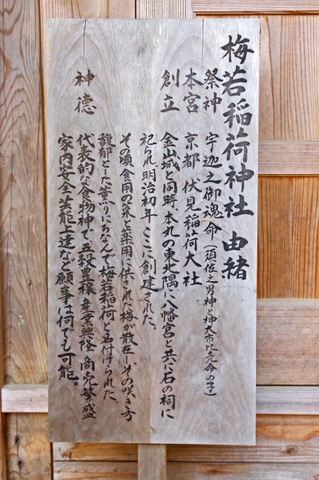 梅若稲荷神社 由緒
祭神 宇迦之御魂命(須佐之男神と神大市比売命の子)
本宮 京都 伏見稲荷大社
創立 金山城と同時、本丸の東北隅に八幡宮と共に石の祠に
祀られ、明治初年、ここに創建された。
その頃食用の末や薬用に供された梅が散在し、その咲き方
馥郁とした香りにちなんで梅若稲荷と名付けられた。
神徳 代表的な食物神で五穀豊穣 産業興隆 商売繁盛
家内安全 芸能上達など願事は何でも可能。